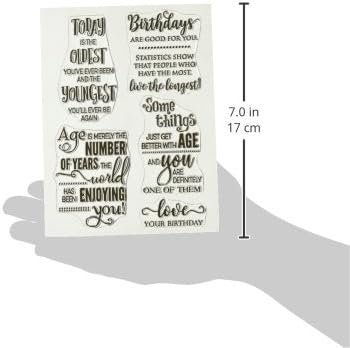 TODAY
IS THE
OLDEST
YOU'VE EVER BEEN!
AND THE
YOUNGEST
YOU'LL EVER BE
AGAIN!
Age IS MERELY THE
NUMBER
OF YEARS THE
world
HAS BEEN ENJOYING
you!
Birthdays
ARE GOOD FOR YOU.
STATISTICS SHOW
THAT PEOPLE WHO
HAVE THE MOST,
live the longest!
Some
things
JUST GET
BETTER WITH AGE
AND you
ARE DEFINITELY
ONE OF THEM
love
YOUR BIRTHDAY
7.0 in
17 cm